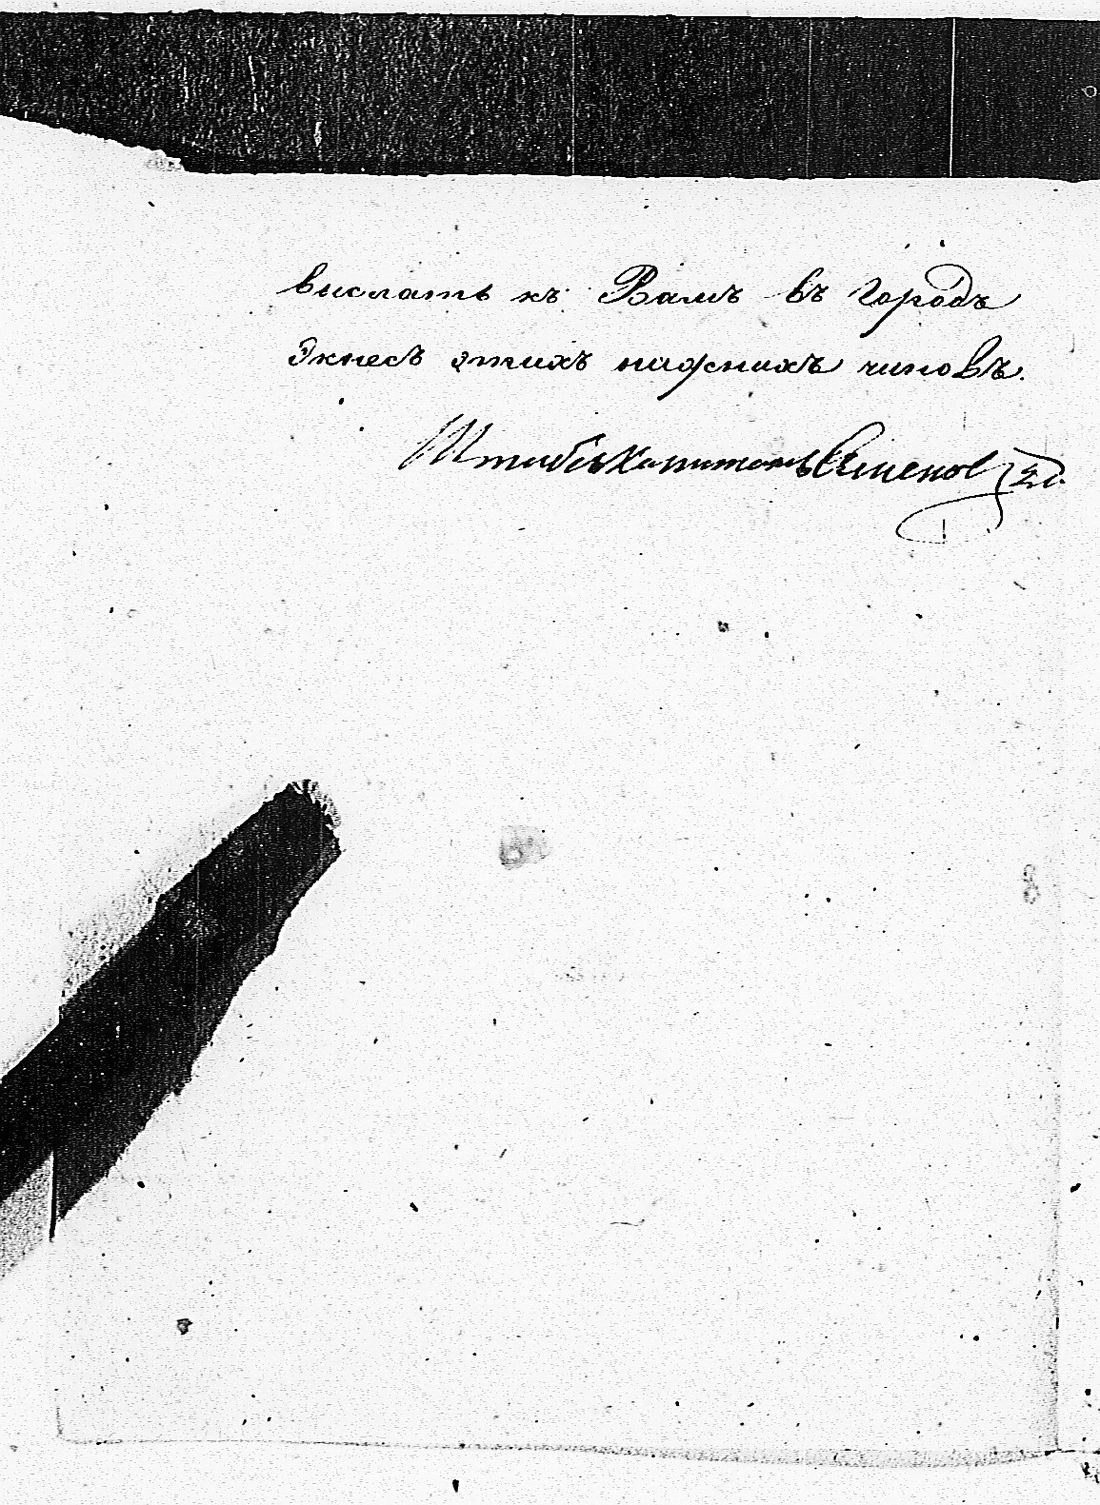 выслать къ Вамъ въ городъ
Экнесъ этихъ нижнихъ чиновъ.
Штабсъ Капитанъ Семенов